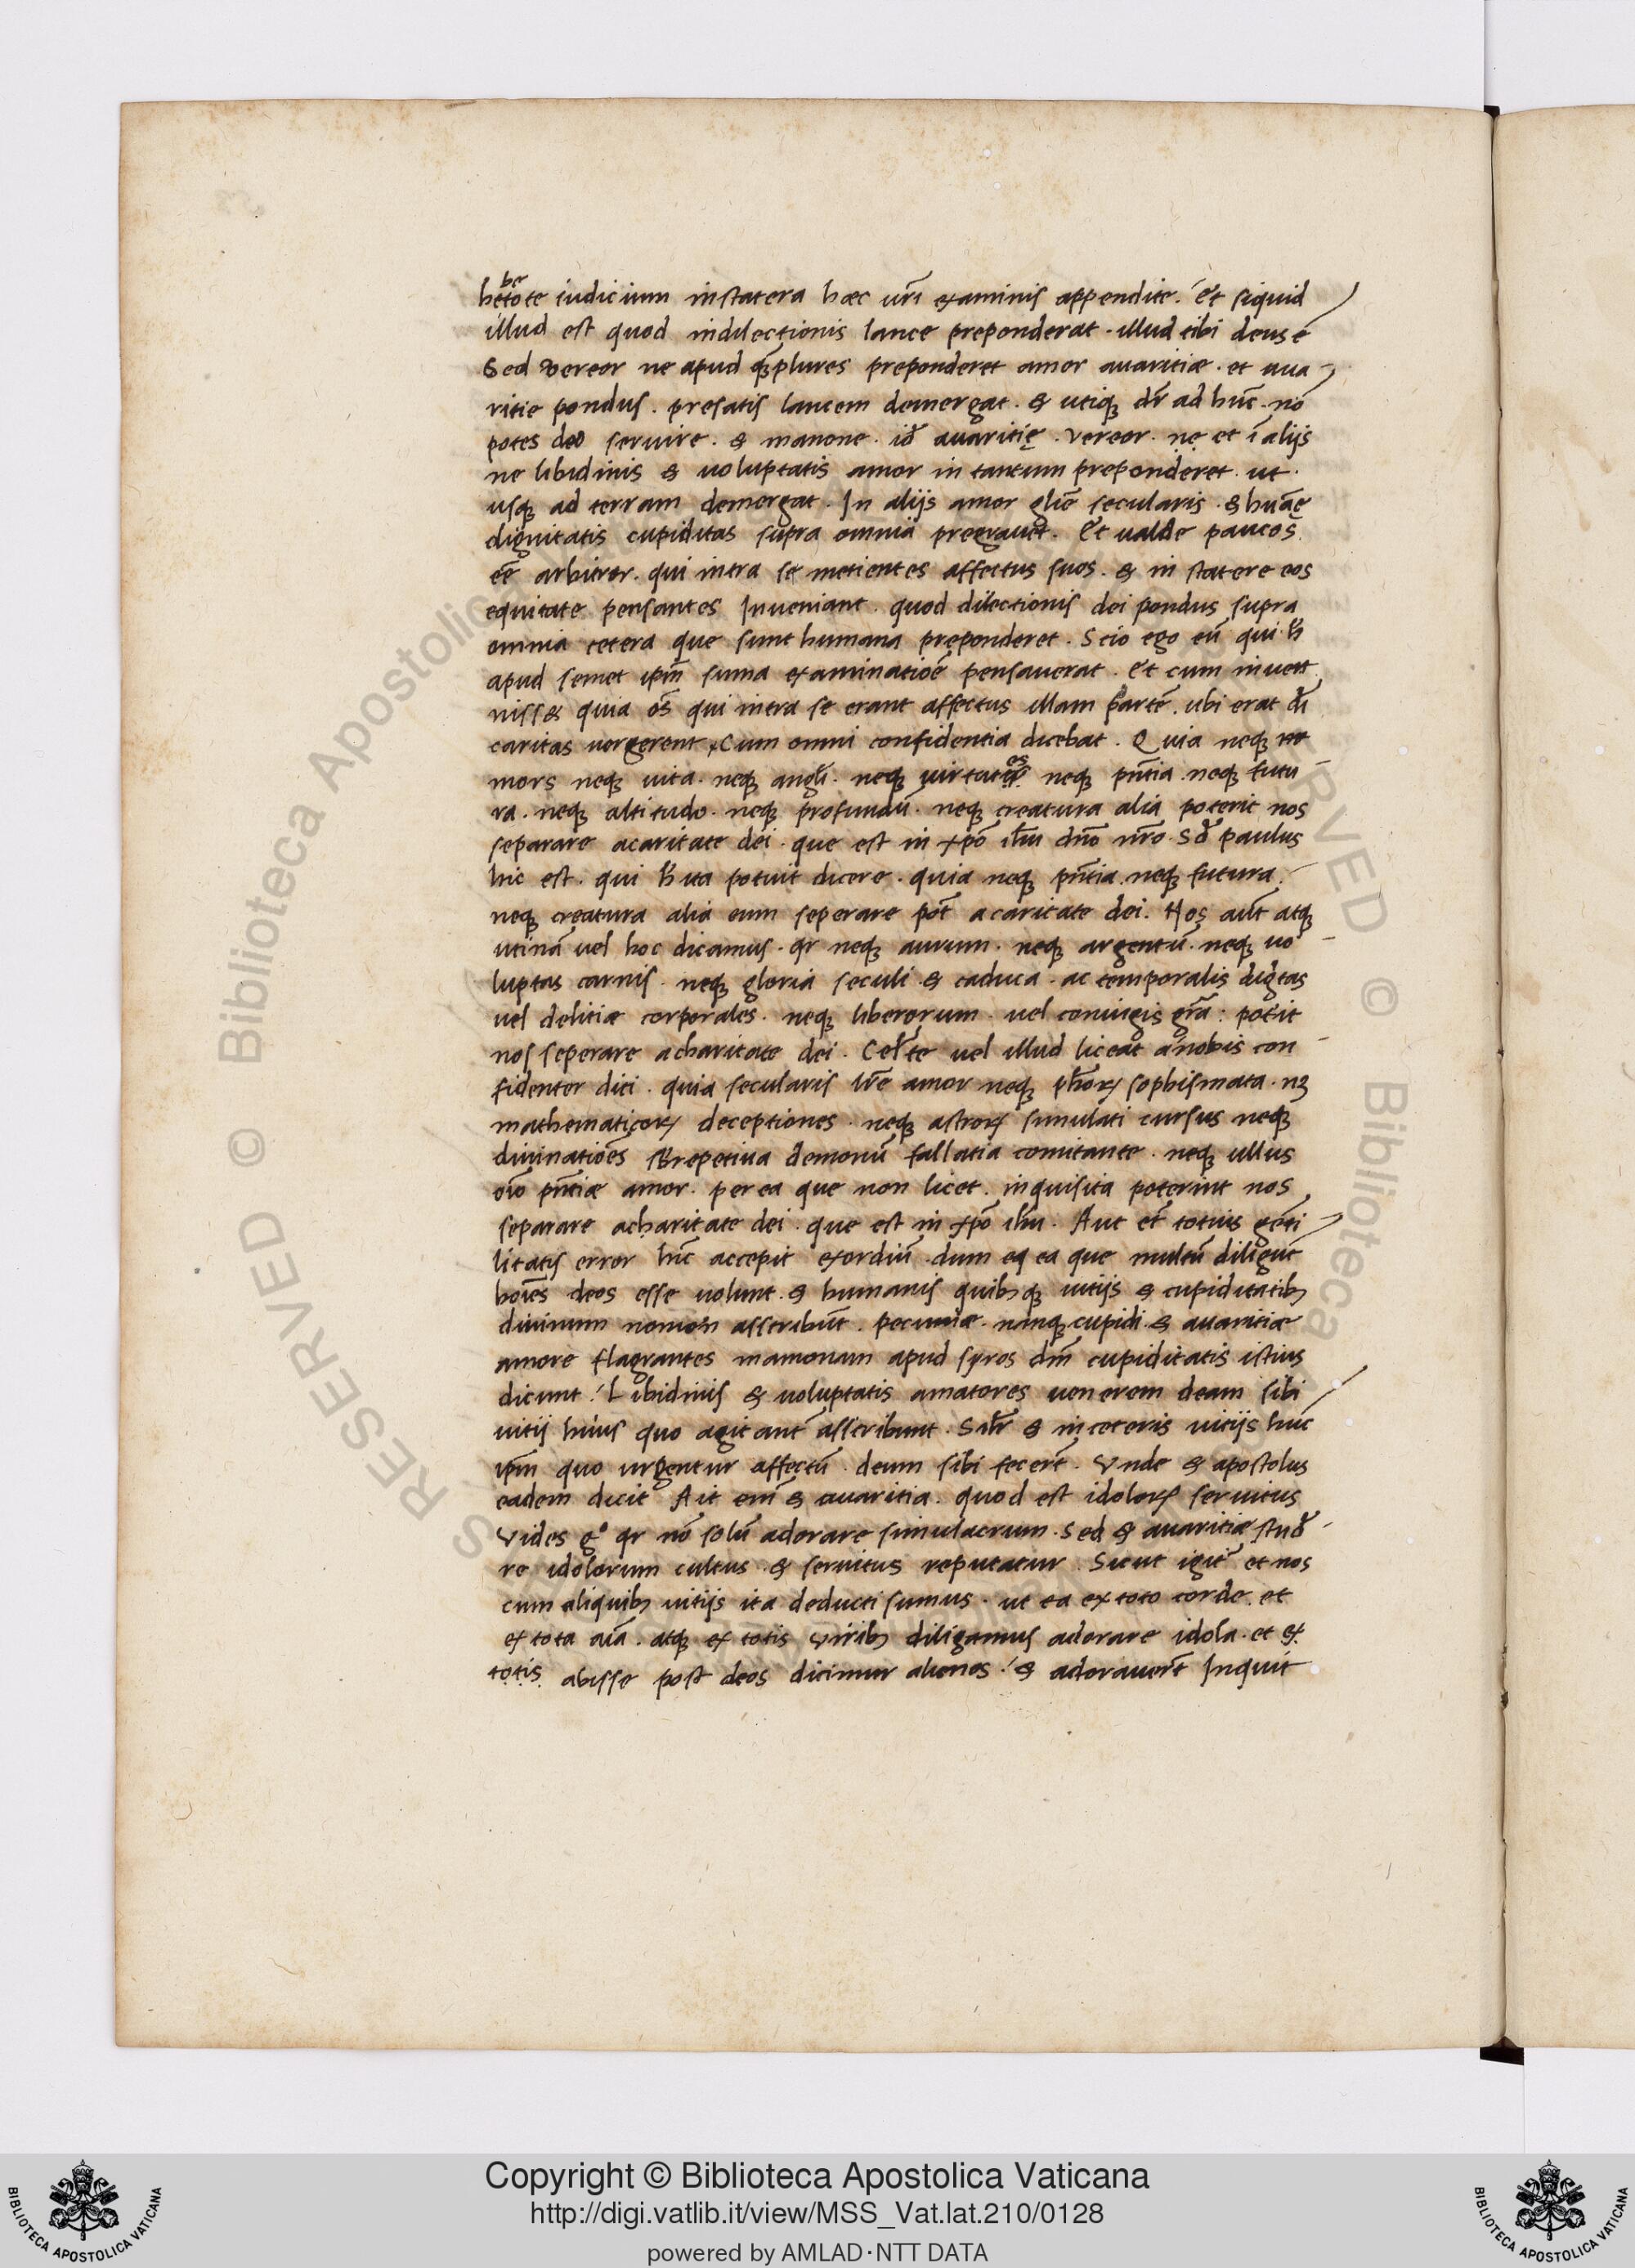 hetote iudicium instatera hæc ur̄i examinis appendite. Et siquid
be
illud est quod indilectionis lance preponderat. illud tibi deus ē
Sed vereor ne apud qplures preponderet amor auaritiæ. et aua
ritie pondus. presatis lancem demergat. & utiqꝫ dr̄ ad hūc. nō
potes deo seruire. & manone. id auaritię. vereor. ne et ī alijs
ne libidinis & uoluptatis amor in tantum preponderet. ut.
usqꝫ ad terram demergat. In alijs amor gliē secularis. & huāę
dignitatis cupiditas supra omnia pregrauet. Et ualde paucos
eē arbitror. qui intra se metientes affectus suos. & in statere eos
equitate pensantes Inueniant. quod dilectionis dei pondus supra
omnia cetera que sunt humana preponderet. Scio ego eū qui h̄
apud semet ipm̄ suma examinatiōe pensauerat. Et cum inuen
nisset quia oēs qui intra se erant affectus illam partē. ubi erat di
caritas uergerent. Cum omni confidentia dicebat. Quia neqꝫ
mors neqꝫ uita. neqꝫ angli. neqꝫ uirtutes neqꝫ pn̄tia. neqꝫ futu
ra. neqꝫ altitudo. neqꝫ profundū. neqꝫ creatura alia poterit nos
separare acaritate dei. que est in xpō ihu dn̄o nr̄o. Sd paulus
hic est. qui h̄ ita potuit dicere. quia neqꝫ pn̄tia. neqꝫ futura.
neqꝫ creatura alia eum seperare pōt acaritate dei. Nos aūt atqꝫ
utinā uel hoc dicamus. qr neqꝫ aurum. neqꝫ argentū. neqꝫ uo
luptas carnis. neqꝫ gloria seculi. & caduca. ac temporalis digtas
uel delitiæ corporales. neqꝫ liberorum. uel coniugis gra: potit
nos seperare acharitate dei. Certe uel illud liceat anobis con
fidenter dici. quia secularis lr̄e amor neqꝫ phoꝝ sophismata. nꝫ
mathematicoꝝ deceptiones. neqꝫ astroꝝ simulati cursus neqꝫ
diuinatiōes repetiua demonū fallatia comitante. neqꝫ ullus
oīo pn̄tiæ amor. per ea que non licet. inquisita poterint nos
separare acharitate dei. que est in xpō ihu. Aut et totius gēti
litatis error hīc accepit exordiū. dum eq ea que multū diligūt
hoīes deos esse uolunt. & humanis quibꝫqꝫ uitijs & cupiditatibꝫ
diuinum nomen asscribūt. pecuniæ. nanqꝫ cupidi. & auaritiæ
amore flagrantes mamonam apud syros dm̄ cupiditatis istius
dicunt. Libidinis & uoluptatis amatores uenerem deam sibi
uitij huius quo agitant asscribunt. Silr & inceteris uitijs huic
ipm quo urgentur affectū. deum sibi fecert. Vnde & apostolus
eadem dicit Ait eni & auaritia. quod est idoloꝝ seruitus
Vides g° qr nō solū adorare simulacrum. Sed & auaritiæ stud
re idolorum cultus & seruitus reputatur. Sicut igit et nos
cum aliquibꝫ uitijs ita deducti sumus. ut ea ex toto corde. et
ex tota aīa. atqꝫ ex totis viribꝫ diligamus adorare idola. et ex
totis abisse post deos dicimur alienos. & adorauert Inquit
Copyright © Biblioteca Apostolica Vaticana
http://digi.vatlib.it/view/MSS_Vat.lat.210/0128
powered by AMLAD·NTT DATA